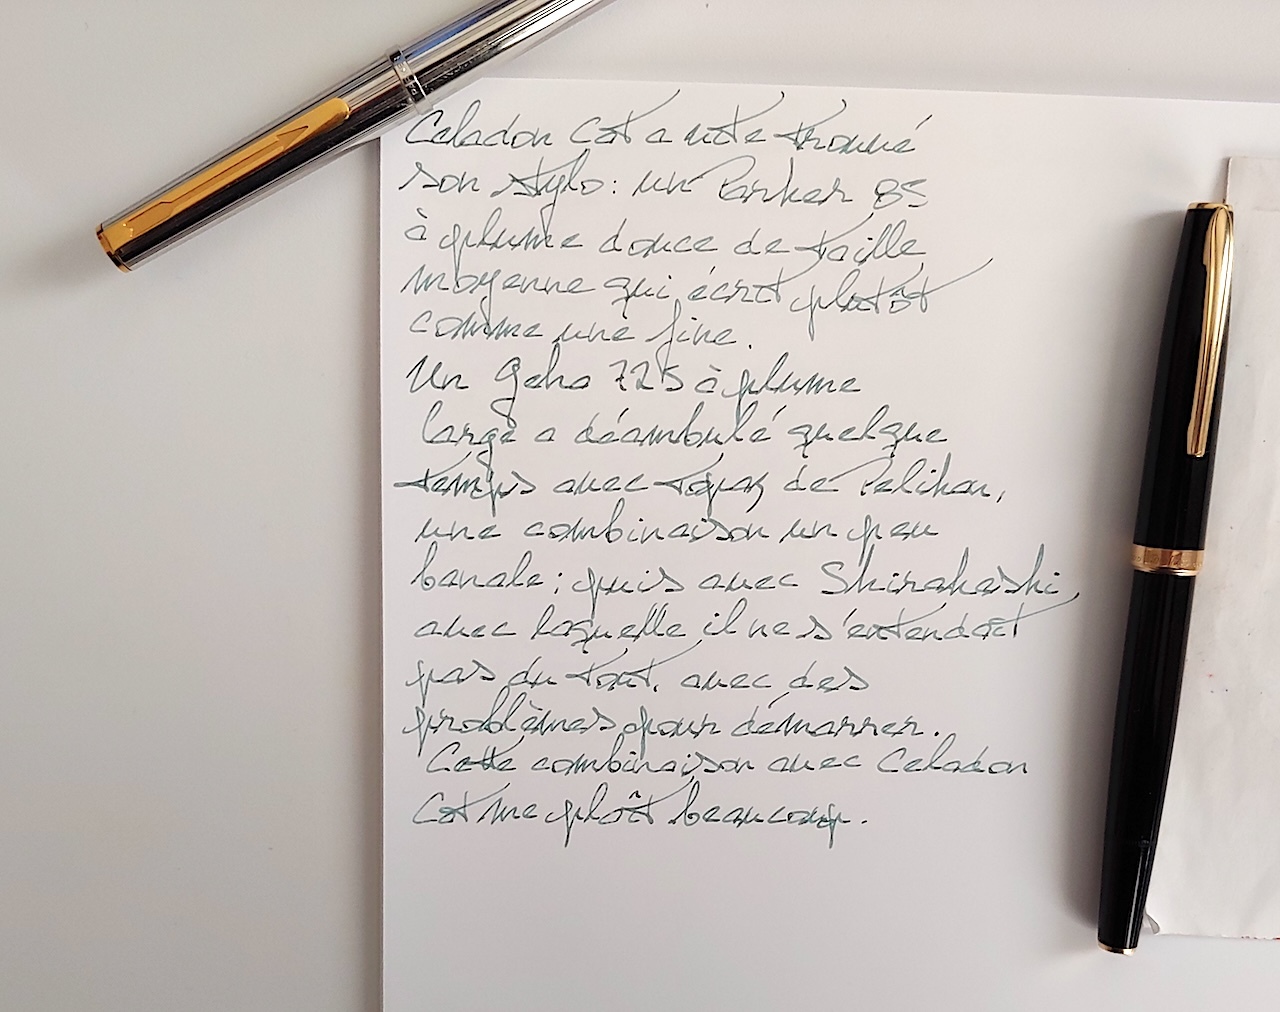 Celadon Cat a vite trouvé
son stylo : un Parker 85
à plume douce de taille
moyenne qui écrit plutôt
comme une fine.
Un Geha 725 à plume
large a déambulé quelque
temps avec Topaz de Pelikan,
une combinaison un peu
banale ; puis avec Shirakashi
avec laquelle il ne s'entendait
pas du tout, avec des
problèmes pour démarrer.
Cette combinaison avec Celadon
Cat me plaît beaucoup.